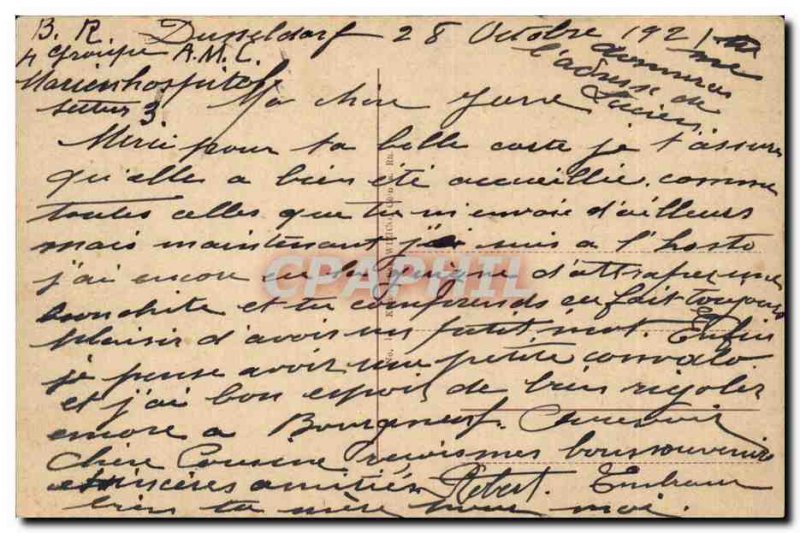 B. R. Dusseldorf 28 Octobre 1921
4 Groupe A.M.C.
Marienhospital
donneras me
l'adresse de
Lucien
Ma chère
Merci pour ta belle carte je t'assure
qu'elle a bien été accueillie. comme
toutes celles que tu m'envoie d'ailleurs
mais maintenant je suis a l'hosto
j'ai encore eu la guigne d'attraper une
bronchite et tu comprends ça fait toujours
plaisir d'avoir un petit mot. Enfin
je pense avoir une petite convalo
et j'ai bon espoir de bien rigoler
encore a Bourgneuf. Au revoir
chère Cousine bons souvenirs
et sincères amitiés Robert. Embrasse
bien ta mère pour moi.
CPAPHIL